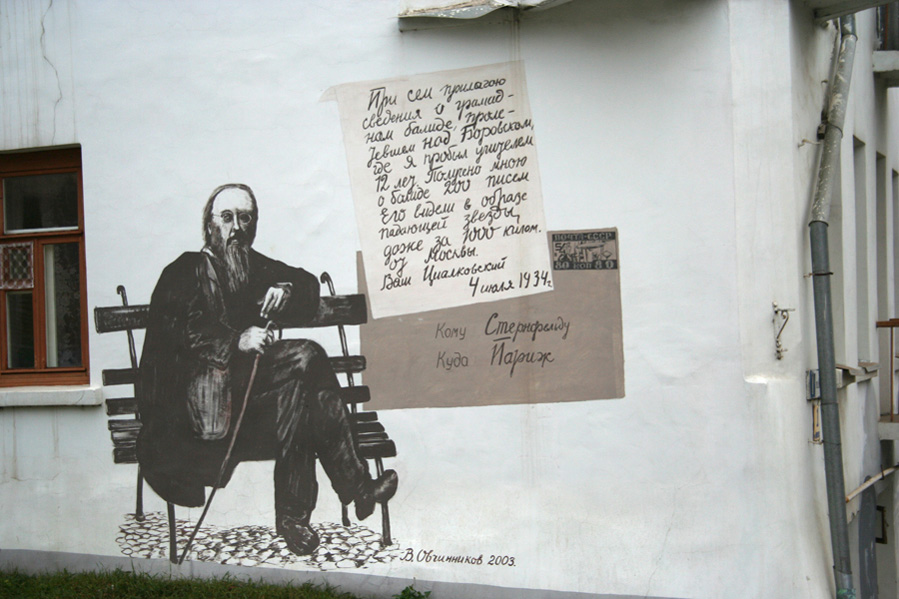 При сем прилагаю
сведения о громад-
ном болиде, проле-
тевшем над Боровском,
где я пробыл учителем
12 лет. Получено мною
о болиде 200 писем
Его видели в образе
падающей звезды,
даже за 1000 килом.
от Москвы.
Ваш Циолковский
4 июля 1934 г.
ПОЧТА СССР
80 КОП 80
Кому Стернфельду
Куда Париж
В. Овчинников 2003.